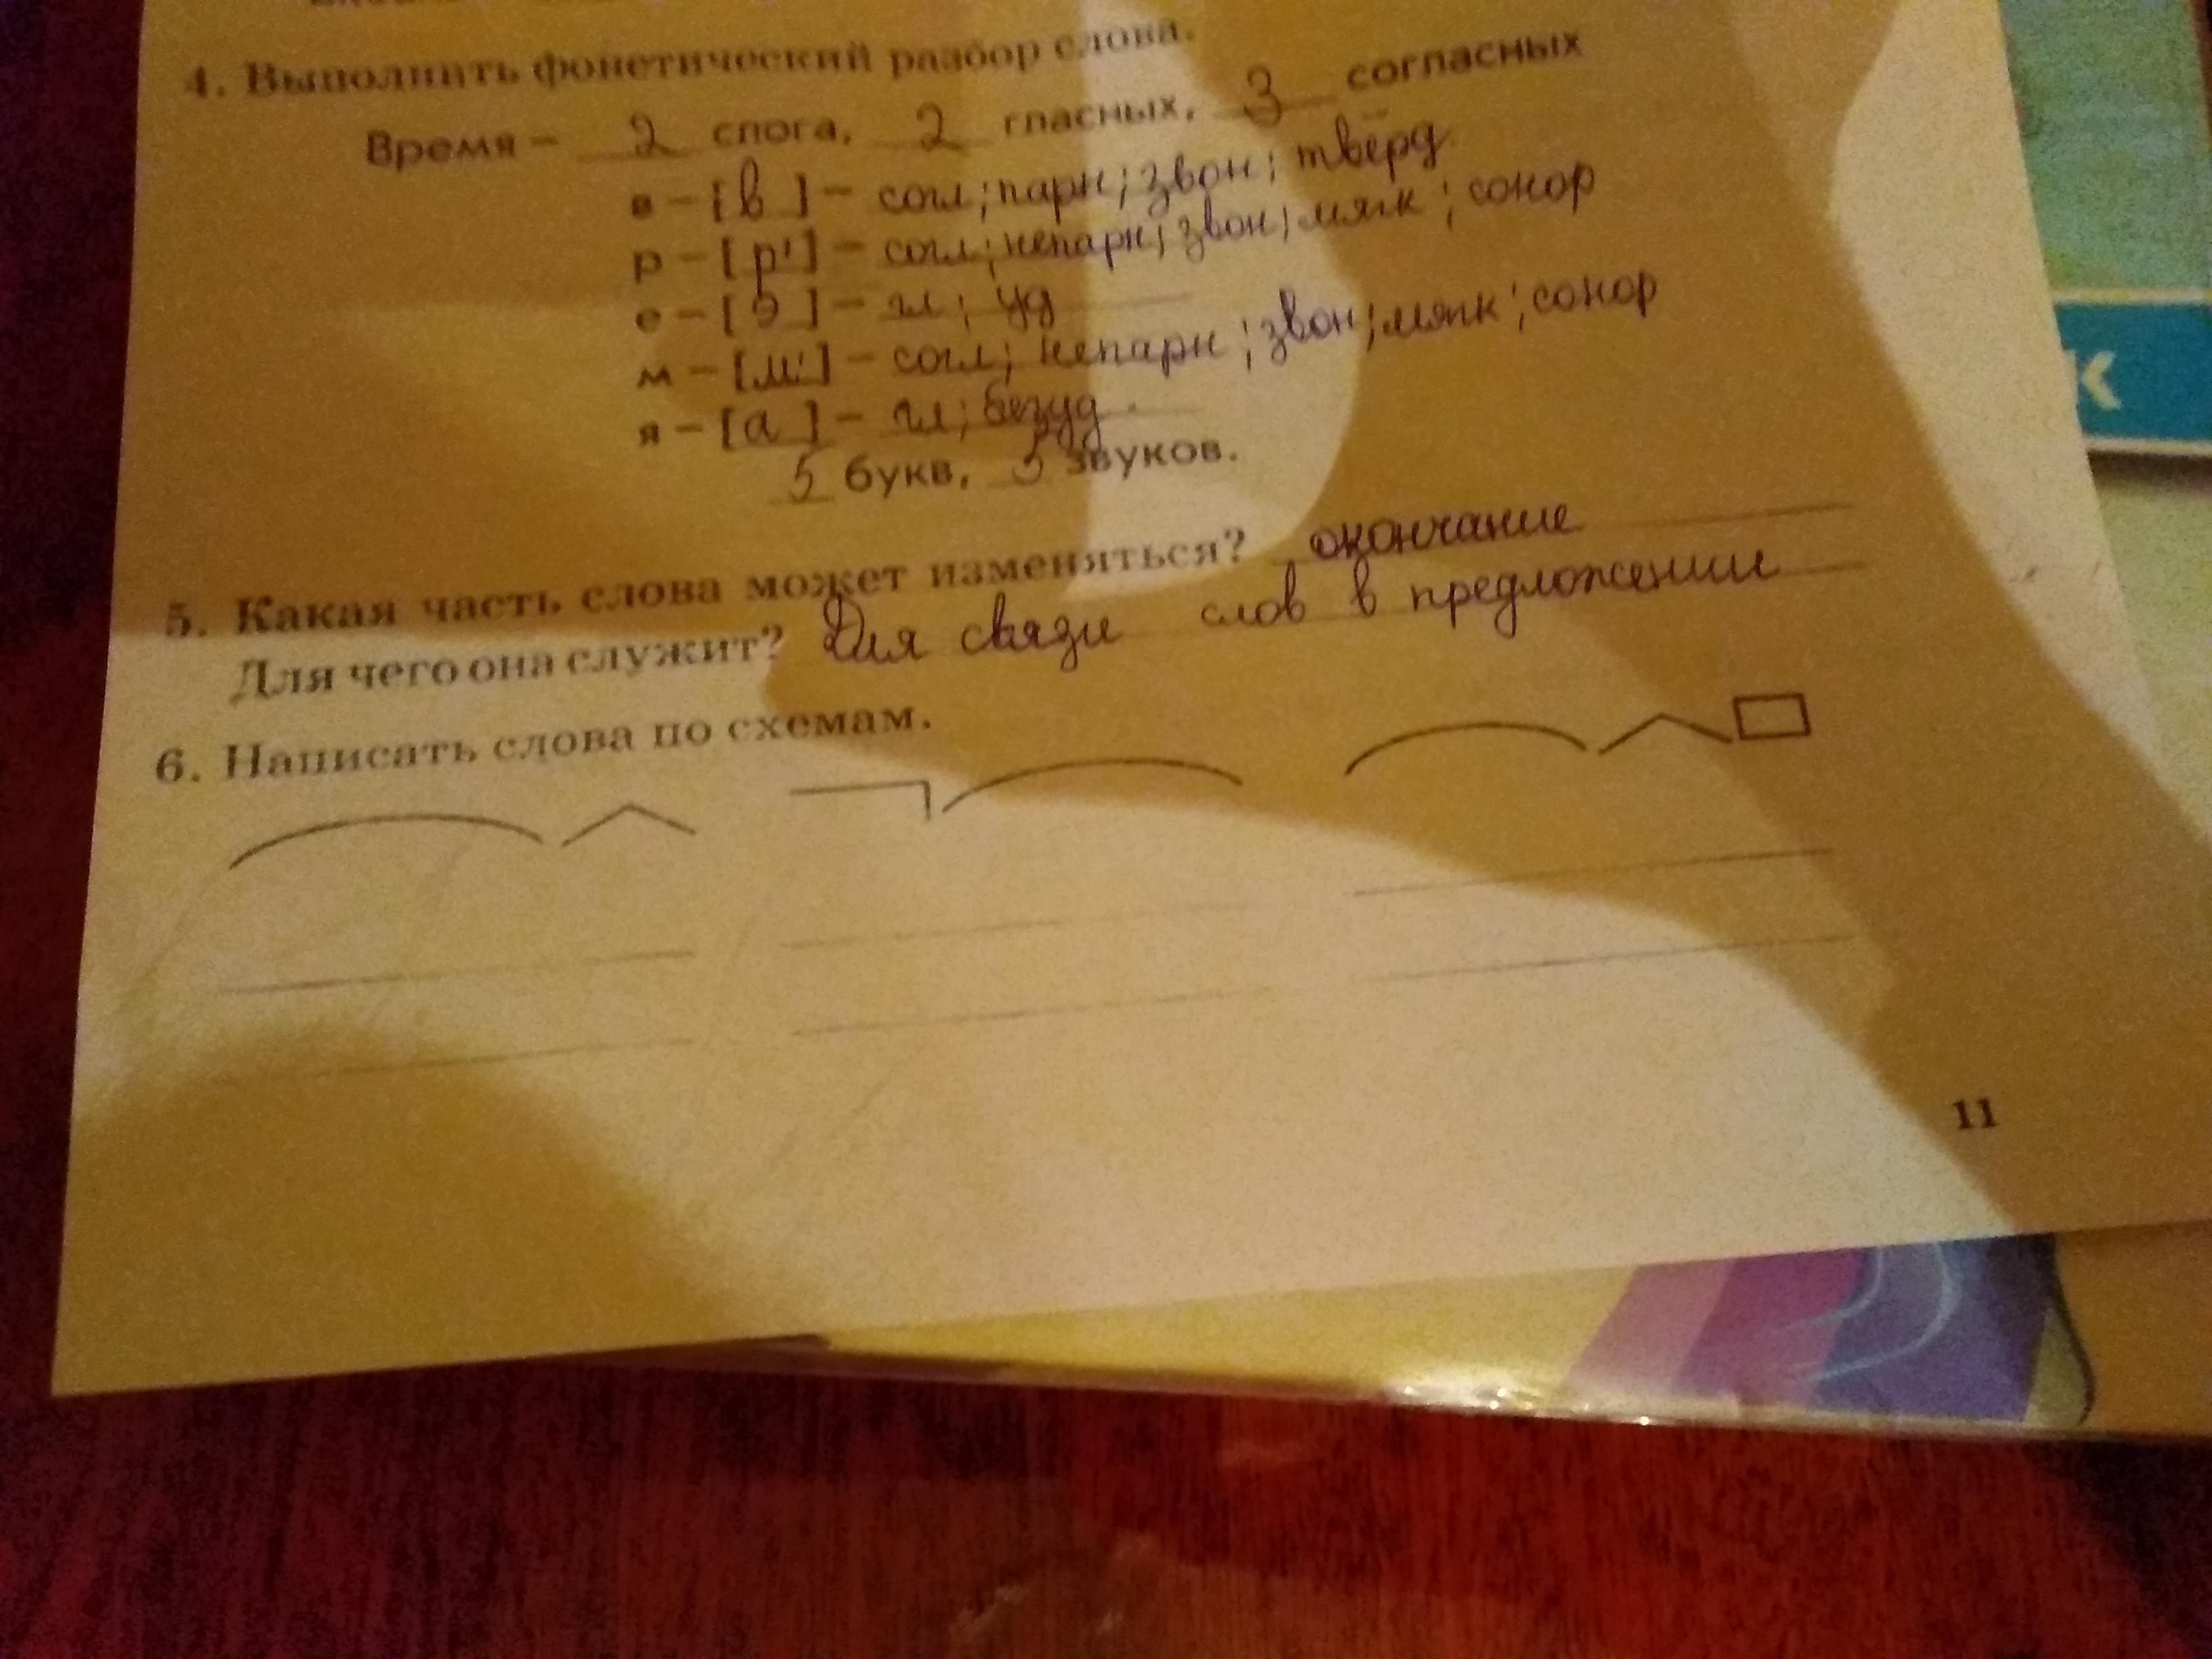 4. Выполнить фонетический разбор слова.
Время – 2 слога, 2 гласных, 3 согласных
в – [в] – согл; парн; звон; твёрд.
р – [р'] – согл; непарн; звон; мягк; сонор
е – [э] – гл; уд
м – [м'] – согл; непарн; звон; мягк; сонор
я – [а] – гл; безуд.
5 букв, 5 звуков.
5. Какая часть слова может изменяться? окончание
Для чего она служит? Для связи слов в предложении
6. Написать слова по схемам.
11
К